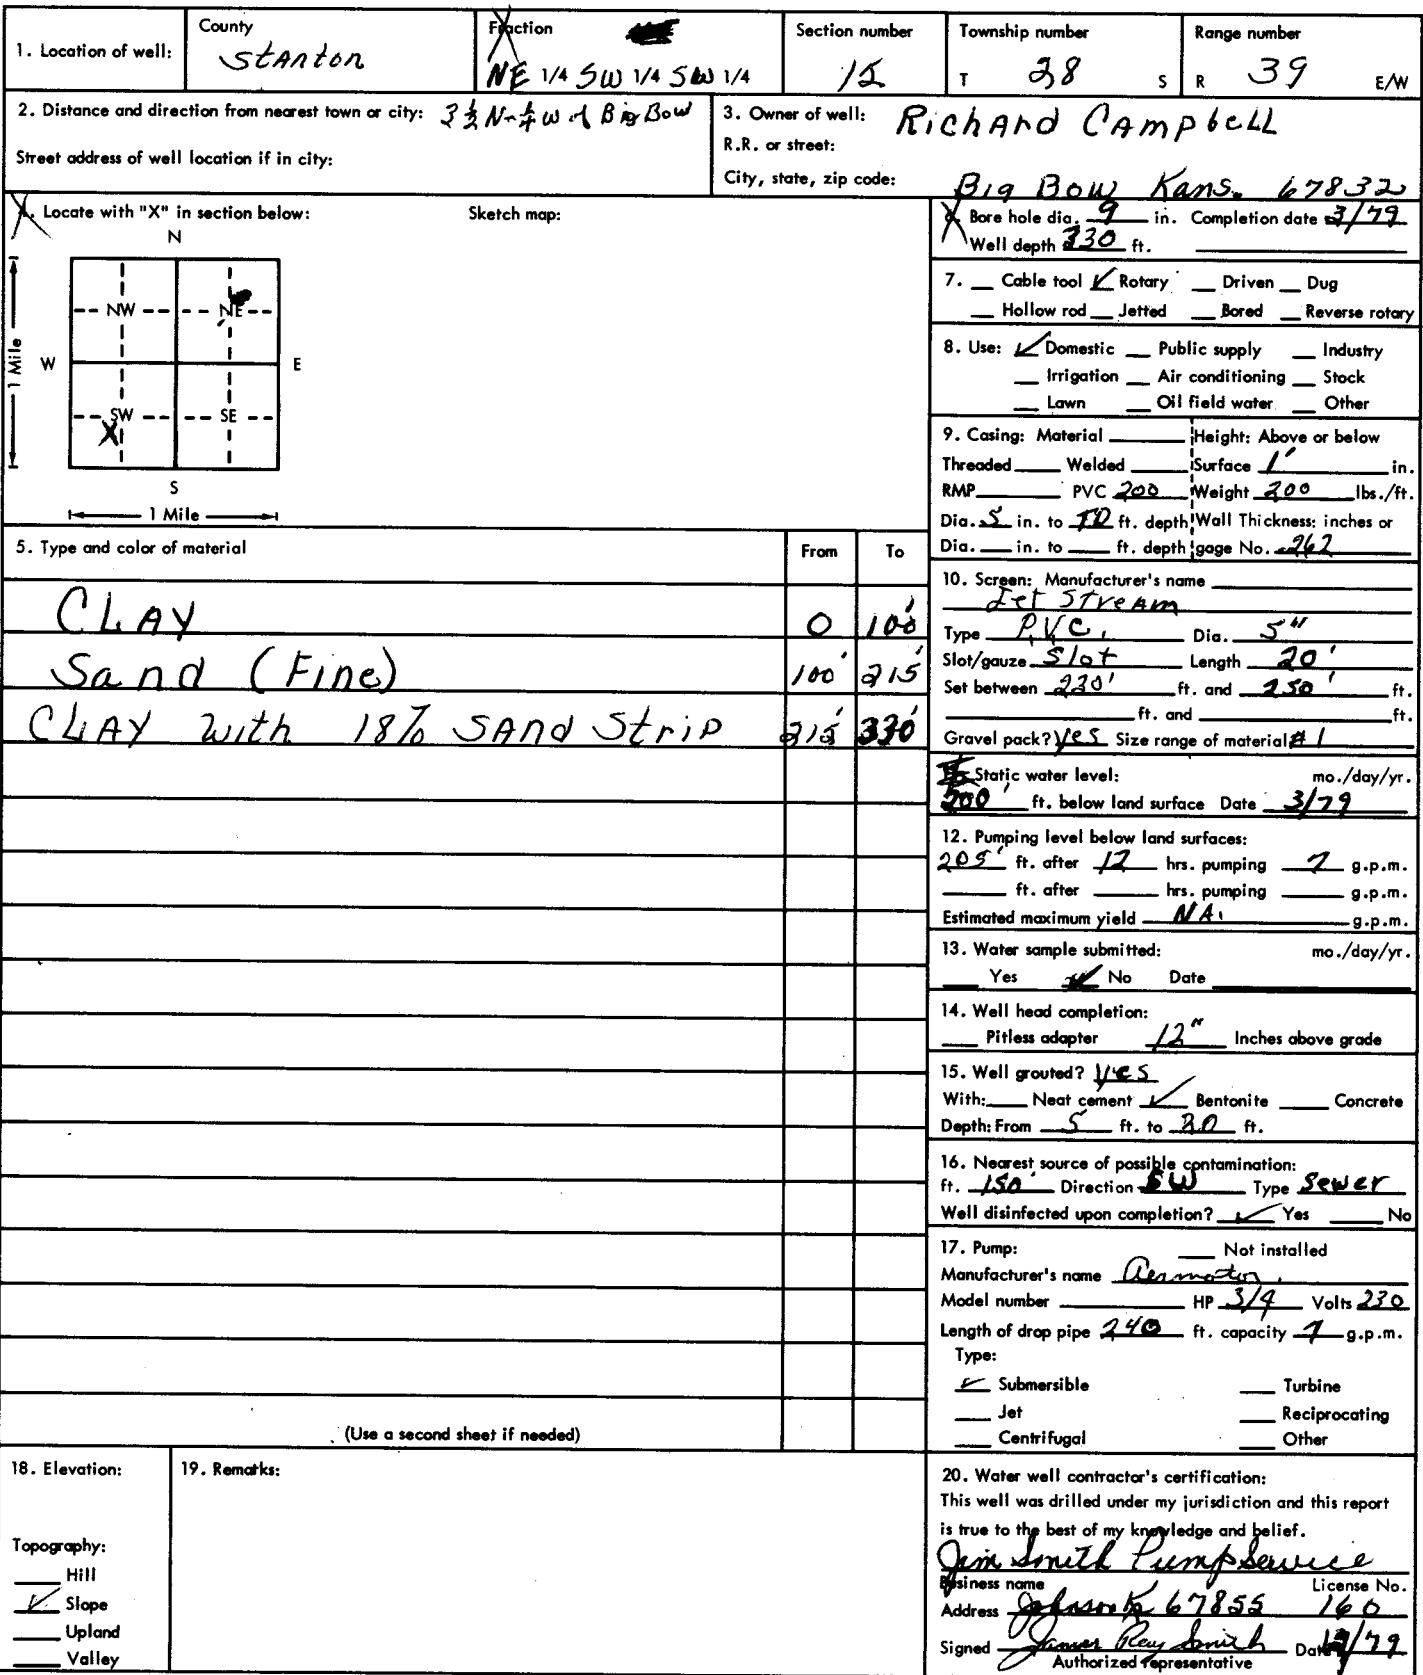 1. Location of well: County Stanton Fraction NE 1/4 SW 1/4 SW 1/4 Section number 15 Township number T 28 S Range number R 39 E/W
2. Distance and direction from nearest town or city: 3 1/2 N - 1/4 W of Big Bow
Street address of well location if in city:
3. Owner of well: Richard Campbell
R.R. or street:
City, state, zip code: Big Bow Kans. 67832
4. Locate with "X" in section below: Sketch map:
N
NW NE
W E
1 Mile
SW SE
X
S
1 Mile
6. Bore hole dia. 9 in. Completion date 3/79
Well depth 330 ft.
7. Cable tool ✓ Rotary Driven Dug
Hollow rod Jetted Bored Reverse rotary
8. Use: ✓ Domestic Public supply Industry
Irrigation Air conditioning Stock
Lawn Oil field water Other
9. Casing: Material Height: Above or below
Threaded Welded Surface 1' in.
RMP PVC 200 Weight 200 lbs./ft.
Dia. 5 in. to TD ft. depth Wall Thickness: inches or
Dia. in. to ft. depth gage No. .262
5. Type and color of material From To
CLAY 0 100'
Sand (Fine) 100' 215'
CLAY with 18% SAnd Strip 215' 330'
(Use a second sheet if needed)
10. Screen: Manufacturer's name
Jet Stream
Type P.V.C. Dia. 5"
Slot/gauze Slot Length 20'
Set between 230' ft. and 250' ft.
ft. and ft.
Gravel pack? Yes Size range of material #1
Static water level: mo./day/yr.
200' ft. below land surface Date 3/79
12. Pumping level below land surfaces:
205' ft. after 12 hrs. pumping 7 g.p.m.
ft. after hrs. pumping g.p.m.
Estimated maximum yield NA. g.p.m.
13. Water sample submitted: mo./day/yr.
Yes ✓ No Date
14. Well head completion:
Pitless adapter 12" Inches above grade
15. Well grouted? Yes
With: Neat cement ✓ Bentonite Concrete
Depth: From 5 ft. to 20 ft.
16. Nearest source of possible contamination:
ft. 150' Direction SW Type Sewer
Well disinfected upon completion? ✓ Yes No
17. Pump: Not installed
Manufacturer's name Aermotor
Model number HP 3/4 Volts 230
Length of drop pipe 240 ft. capacity 7 g.p.m.
Type:
✓ Submersible Turbine
Jet Reciprocating
Centrifugal Other
18. Elevation:
Topography:
Hill
✓ Slope
Upland
Valley
19. Remarks:
20. Water well contractor's certification:
This well was drilled under my jurisdiction and this report
is true to the best of my knowledge and belief.
Jim Smith Pump Service
Business name License No.
Address Johnson Ks 67855 160
Signed James Ray Smith Date /79
Authorized representative